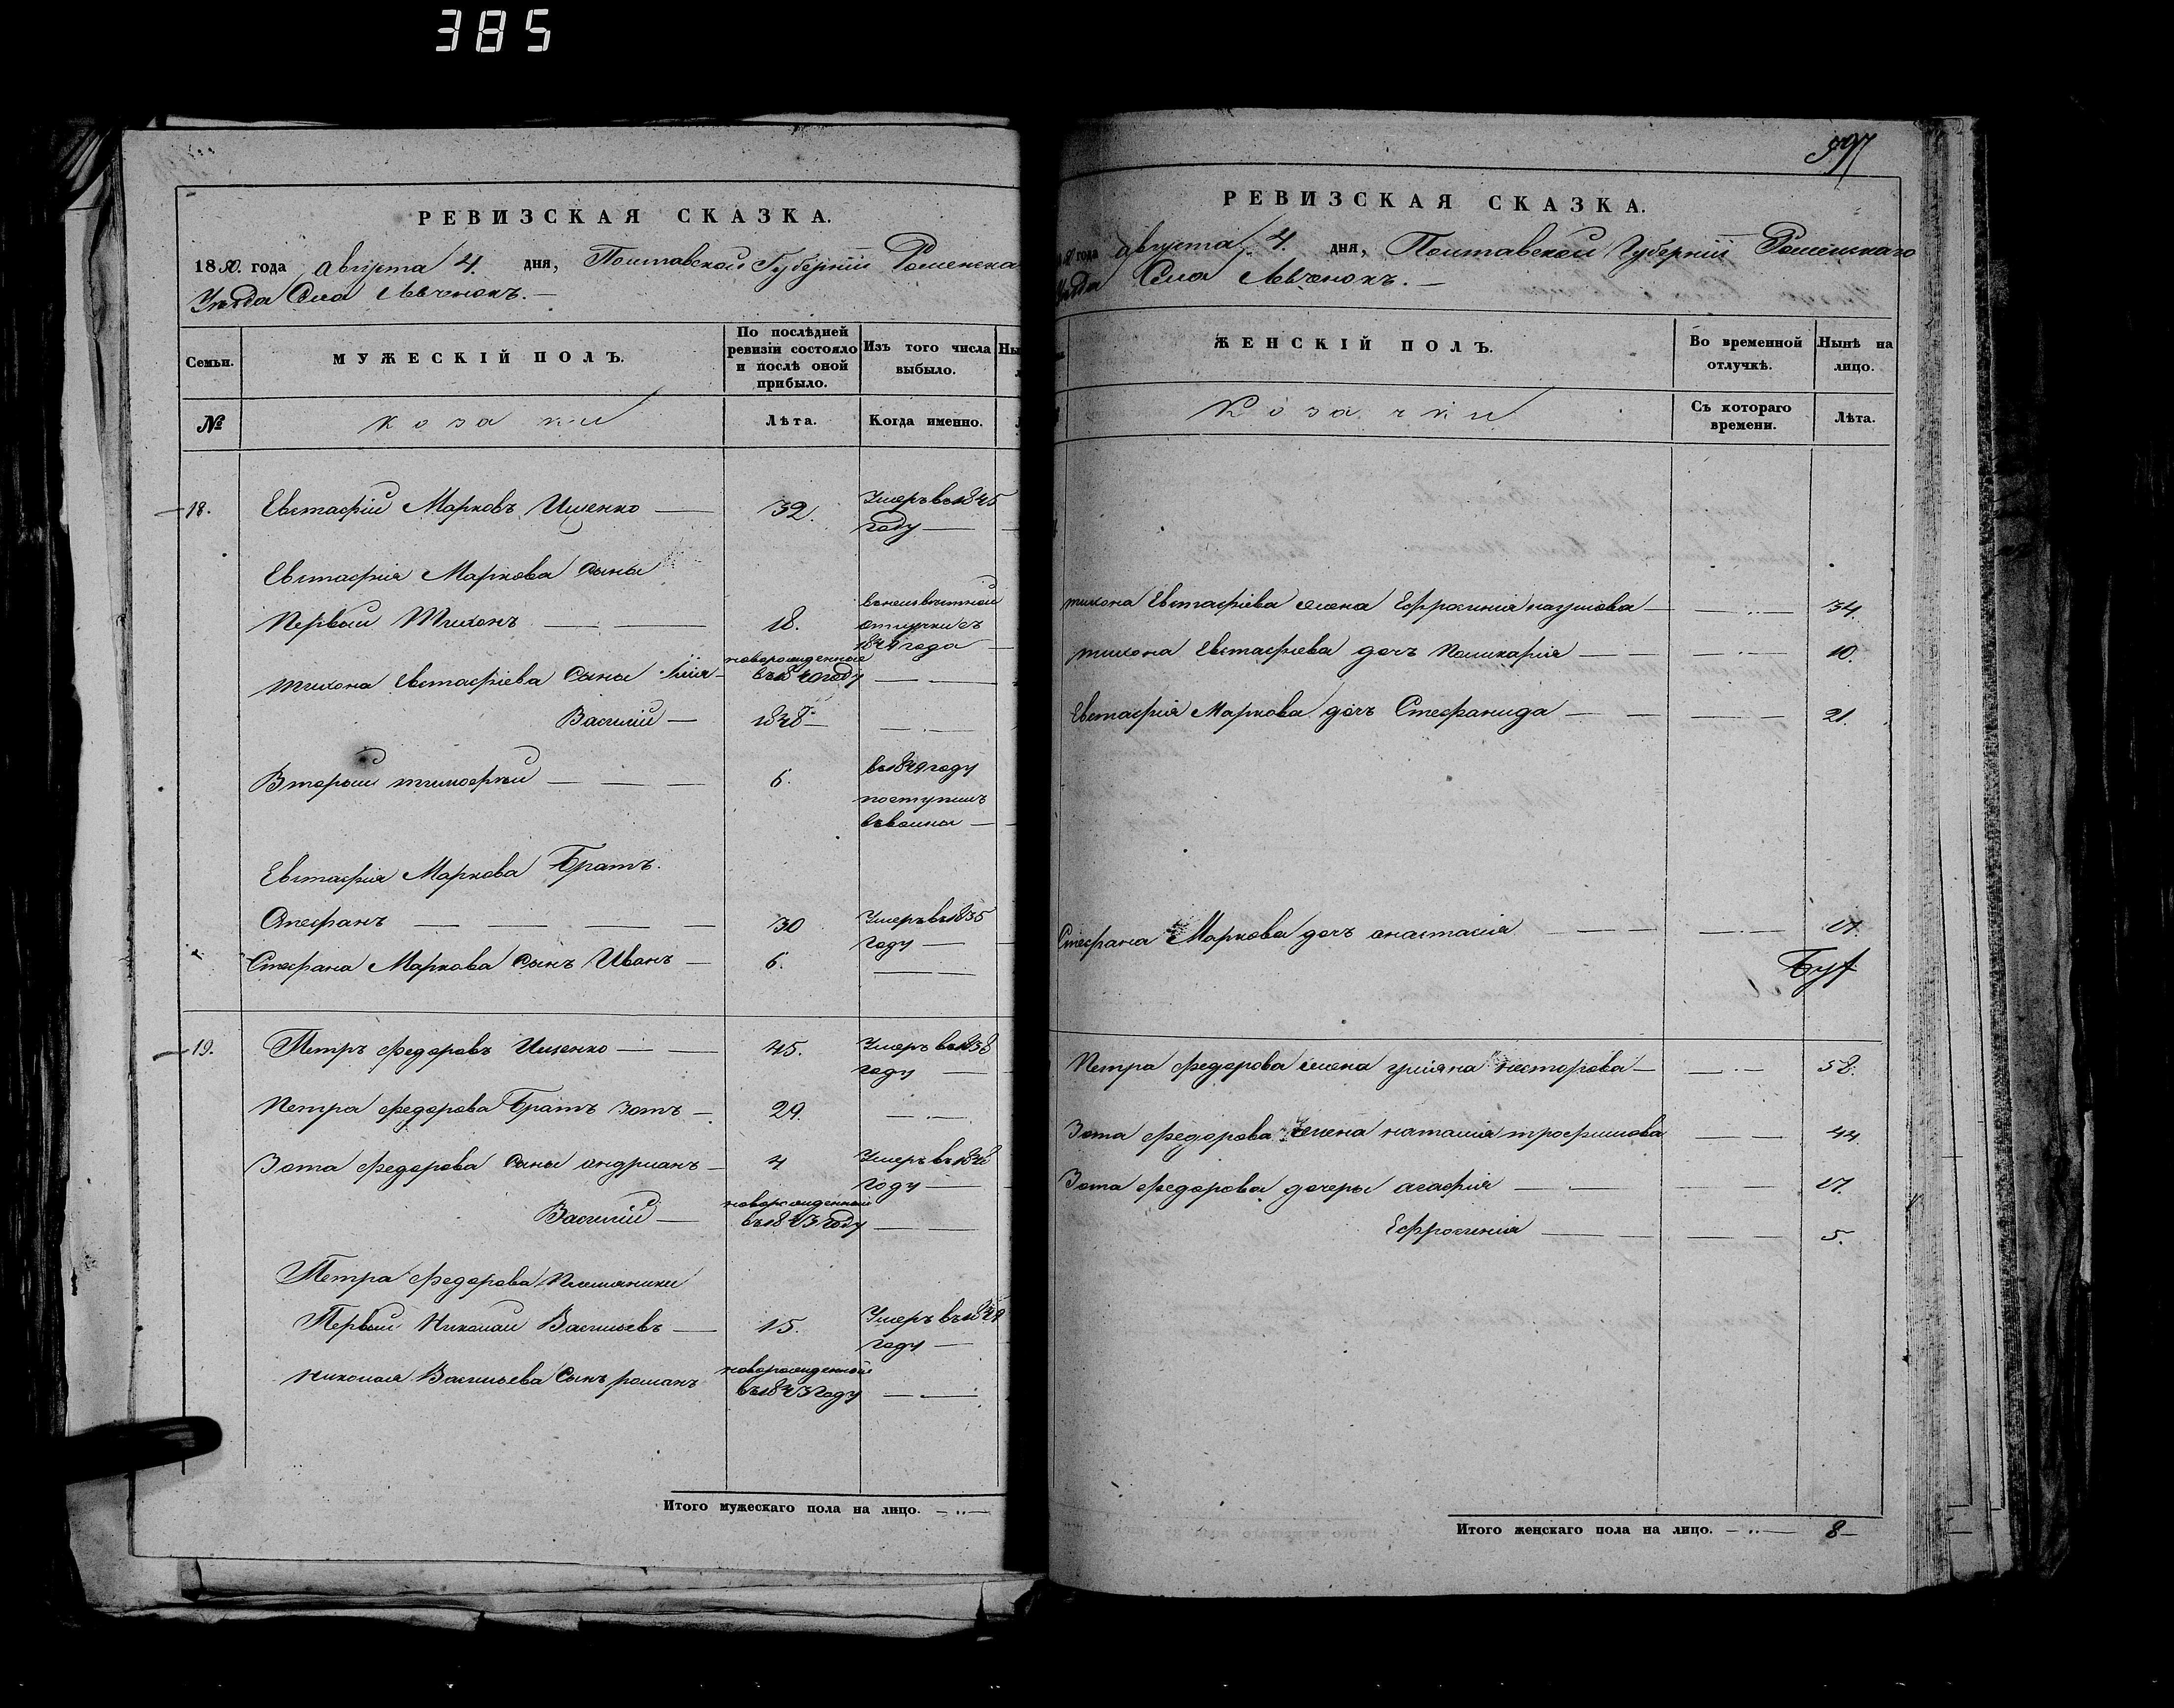 385
РЕВИЗСКАЯ СКАЗКА.
1850. года августа 4. дня, Полтавской Губерніи Роменска
Уѣзда Села Левченокъ. —
Семьи.
МУЖЕСКІЙ ПОЛЪ.
По послѣдней ревизіи состояло и послѣ оной прибыло.
Изъ того числа выбыло.
№
Козаки
Лѣта.
Когда именно.
18. Евстафій Марковъ Ищенко — 32. Умеръ въ 1845
году —
Евстафія Маркова Сыны
Первый Тихонъ — — 18. въ неизвѣстной
отлучки съ
года —
Тихона Евстафіева Сыны Илія — новорожденные
въ 1840 году — —
Василій — 1848 —
Вторый Тимофѣй — — — 6. въ 1849 году
поступилъ
—
Евстафія Маркова Братъ.
Стефанъ — — — — 30 Умеръ въ 1835
году —
Стефана Маркова Сынъ Иванъ — 6. —
19. Петръ Федоровъ Ищенко — — 45. Умеръ въ 1838
году —
Петра Федорова Братъ Зотъ — 29. —
Зота Федорова Сыны Андріанъ — 4 Умеръ въ
году —
Василій — новорожденный
въ 1843 году — —
Петра Федорова Племяники
Первый Николай Васильевъ — 15. Умеръ въ
году —
Николая Васильева Сынъ романъ новорожденный
въ 1843 году — —
Итого мужескаго пола на лицо. — .. —
597
РЕВИЗСКАЯ СКАЗКА.
года августа 4. дня, Полтавской Губерніи Роменскаго
Села Левченокъ. —
ЖЕНСКІЙ ПОЛЪ.
Во временной отлучкѣ.
Нынѣ на лицо.
Козачки
Съ котораго времени.
Лѣта.
Тихона Евстафіева жена Ефросинія наумова — — 34.
Тихона Евстафіева дочь Поликарія — — 10.
Евстафія Маркова дочь Стефанида — — 21.
Стефана Маркова дочь анастасія — — 17.
Петра Федорова жена уліяна несторова — — 58.
Зота Федорова жена наталія трофимова — — 44
Зота Федорова дочери агафія — — 17.
Ефросинія — — 5.
Итого женскаго пола на лицо. — .. — 8 —